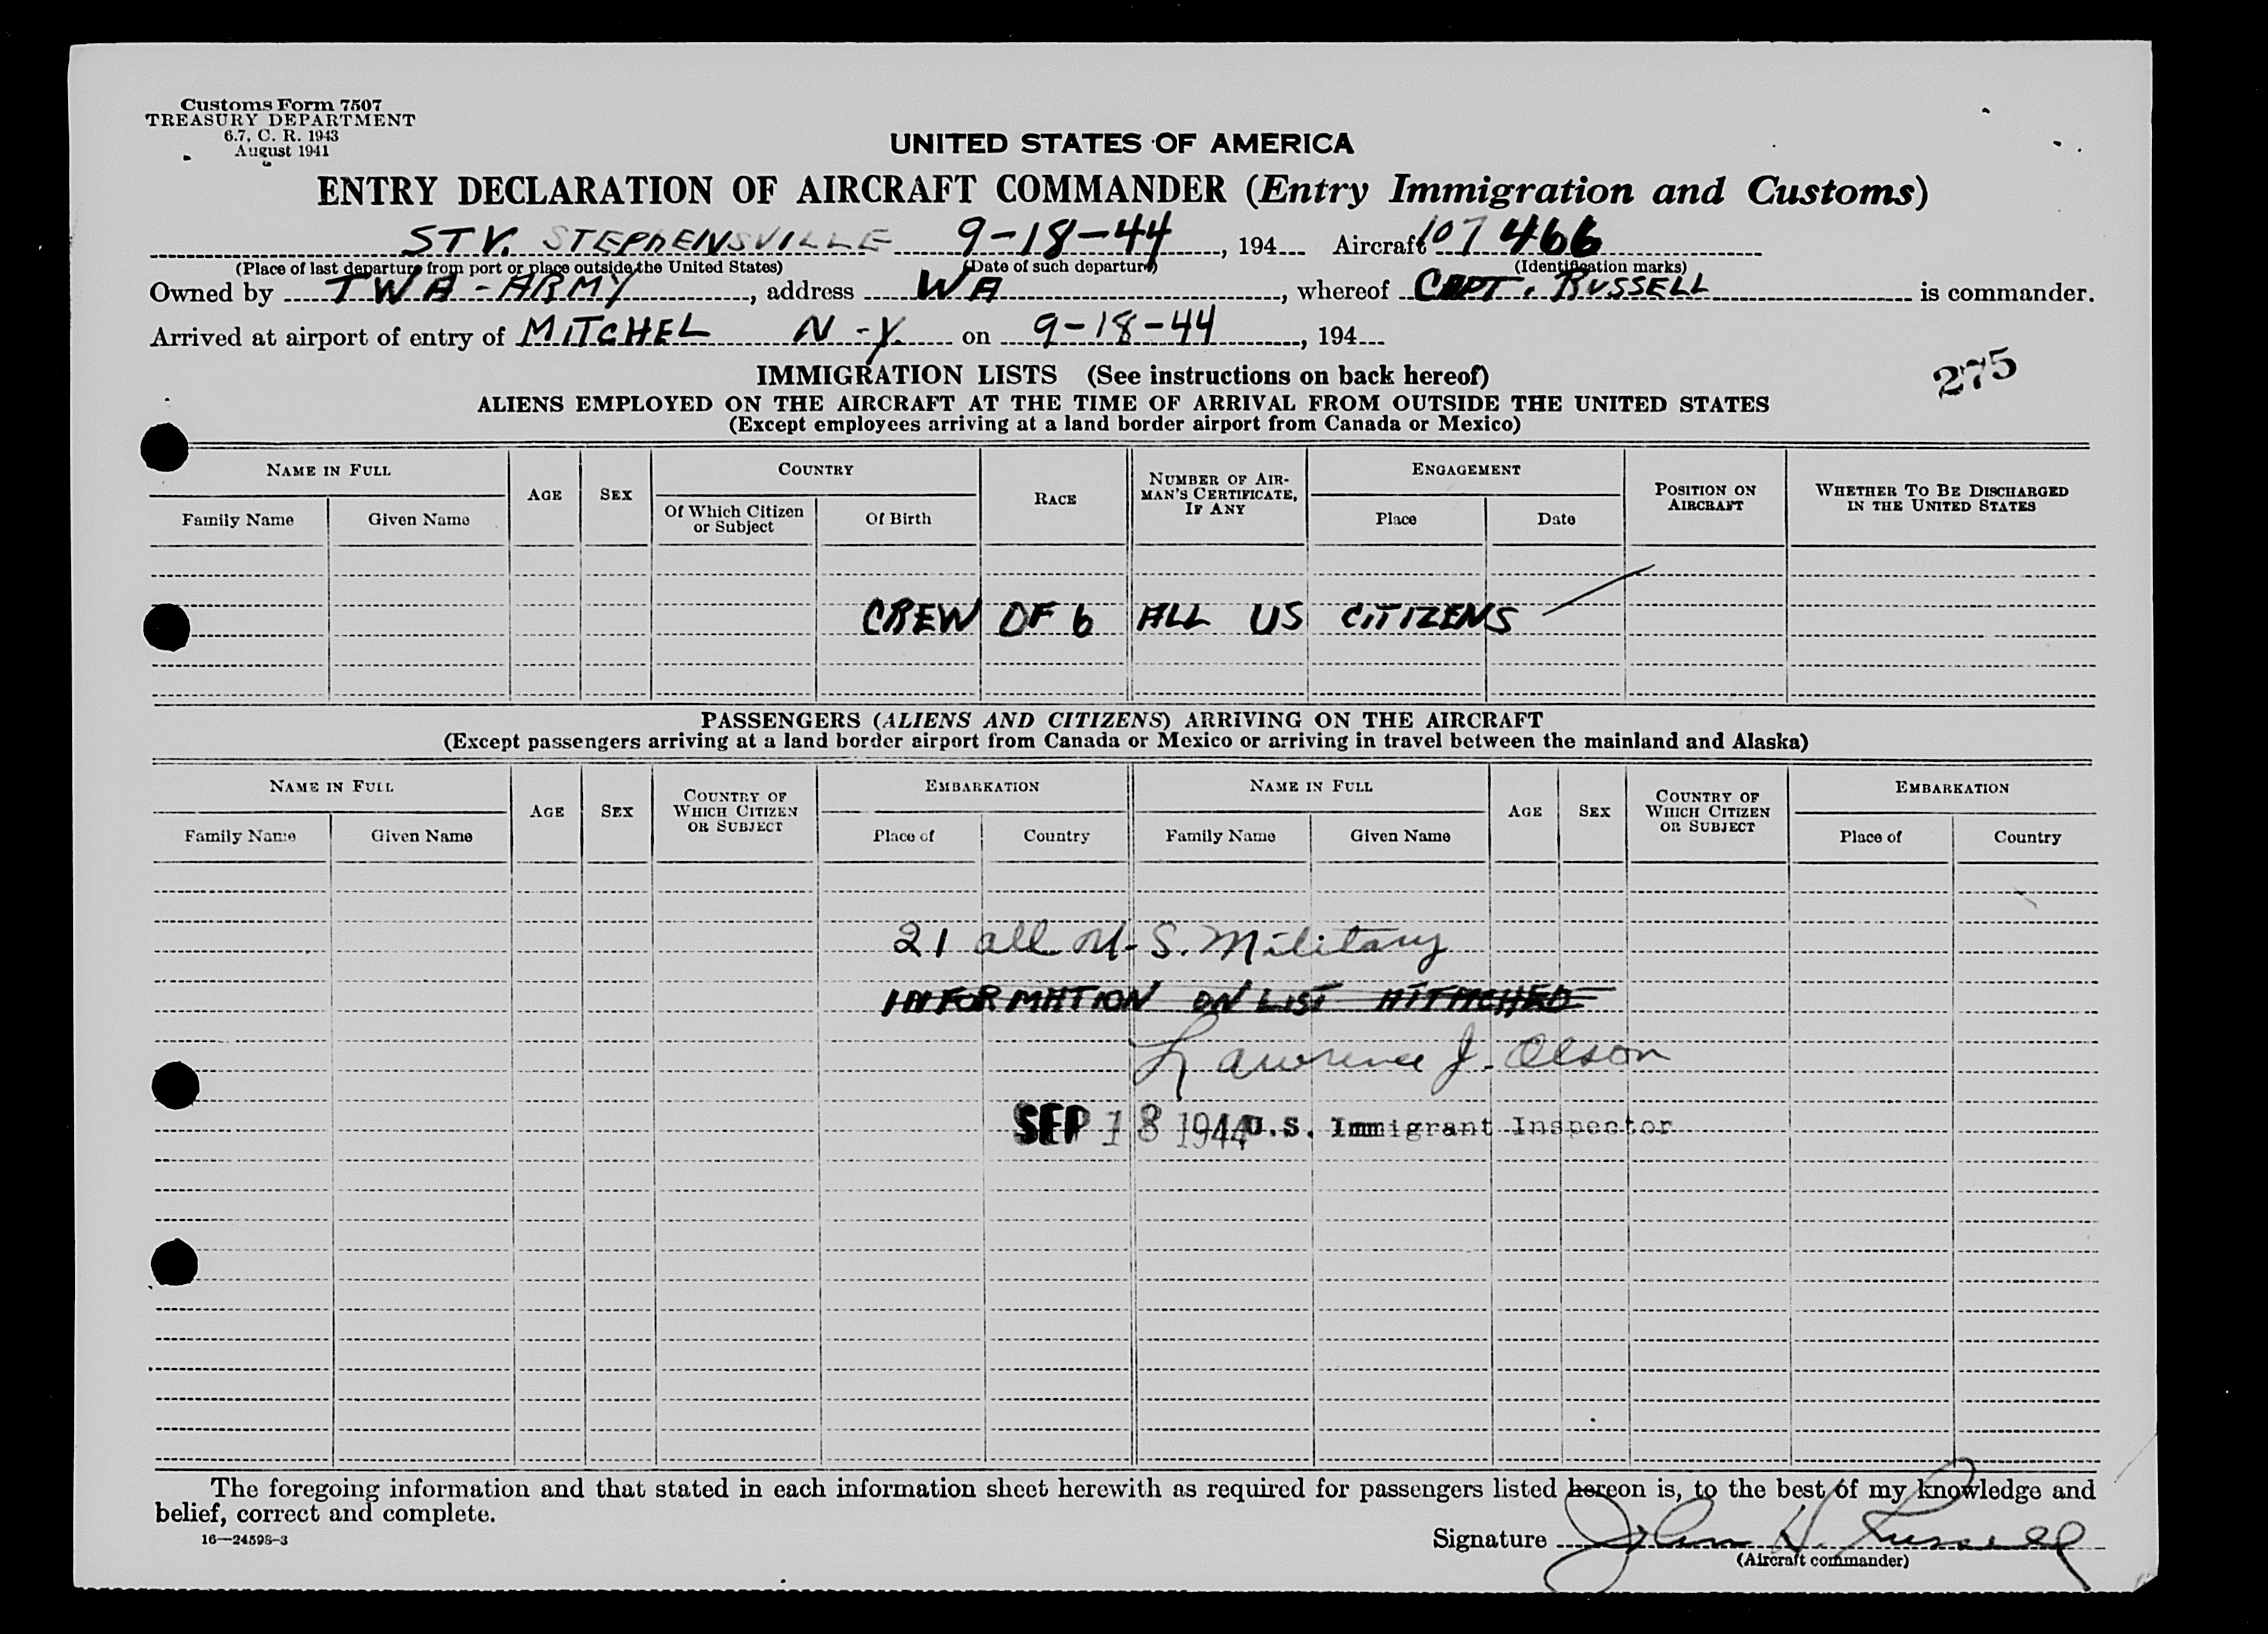 Customs Form 7507
TREASURY DEPARTMENT
6.7, C. R. 1943
August 1941
UNITED STATES OF AMERICA
ENTRY DECLARATION OF AIRCRAFT COMMANDER (Entry Immigration and Customs)
STV. STEPHENSVILLE 9-18-44, 194 Aircraft 107466
(Place of last departure from port or place outside the United States) (Date of such departure) (Identification marks)
Owned by TWA-ARMY, address WA, whereof CAPT. RUSSELL is commander.
Arrived at airport of entry of MITCHEL N-Y. on 9-18-44, 194
275
IMMIGRATION LISTS (See instructions on back hereof)
ALIENS EMPLOYED ON THE AIRCRAFT AT THE TIME OF ARRIVAL FROM OUTSIDE THE UNITED STATES
(Except employees arriving at a land border airport from Canada or Mexico)
NAME IN FULL AGE SEX COUNTRY RACE NUMBER OF AIRMAN'S CERTIFICATE, IF ANY ENGAGEMENT POSITION ON AIRCRAFT WHETHER TO BE DISCHARGED IN THE UNITED STATES
Family Name Given Name Of Which Citizen or Subject Of Birth Place Date
CREW OF 6 ALL US CITIZENS
PASSENGERS (ALIENS AND CITIZENS) ARRIVING ON THE AIRCRAFT
(Except passengers arriving at a land border airport from Canada or Mexico or arriving in travel between the mainland and Alaska)
NAME IN FULL AGE SEX COUNTRY OF WHICH CITIZEN OR SUBJECT EMBARKATION NAME IN FULL AGE SEX COUNTRY OF WHICH CITIZEN OR SUBJECT EMBARKATION
Family Name Given Name Place of Country Family Name Given Name Place of Country
21 all U-S. Military
INFORMATION ON LIST ATTACHED
Lawrence J. Olson
SEP 18 1944 U.S. Immigrant Inspector
The foregoing information and that stated in each information sheet herewith as required for passengers listed hereon is, to the best of my knowledge and
belief, correct and complete.
16—24598-3
Signature John H. Russell
(Aircraft commander)